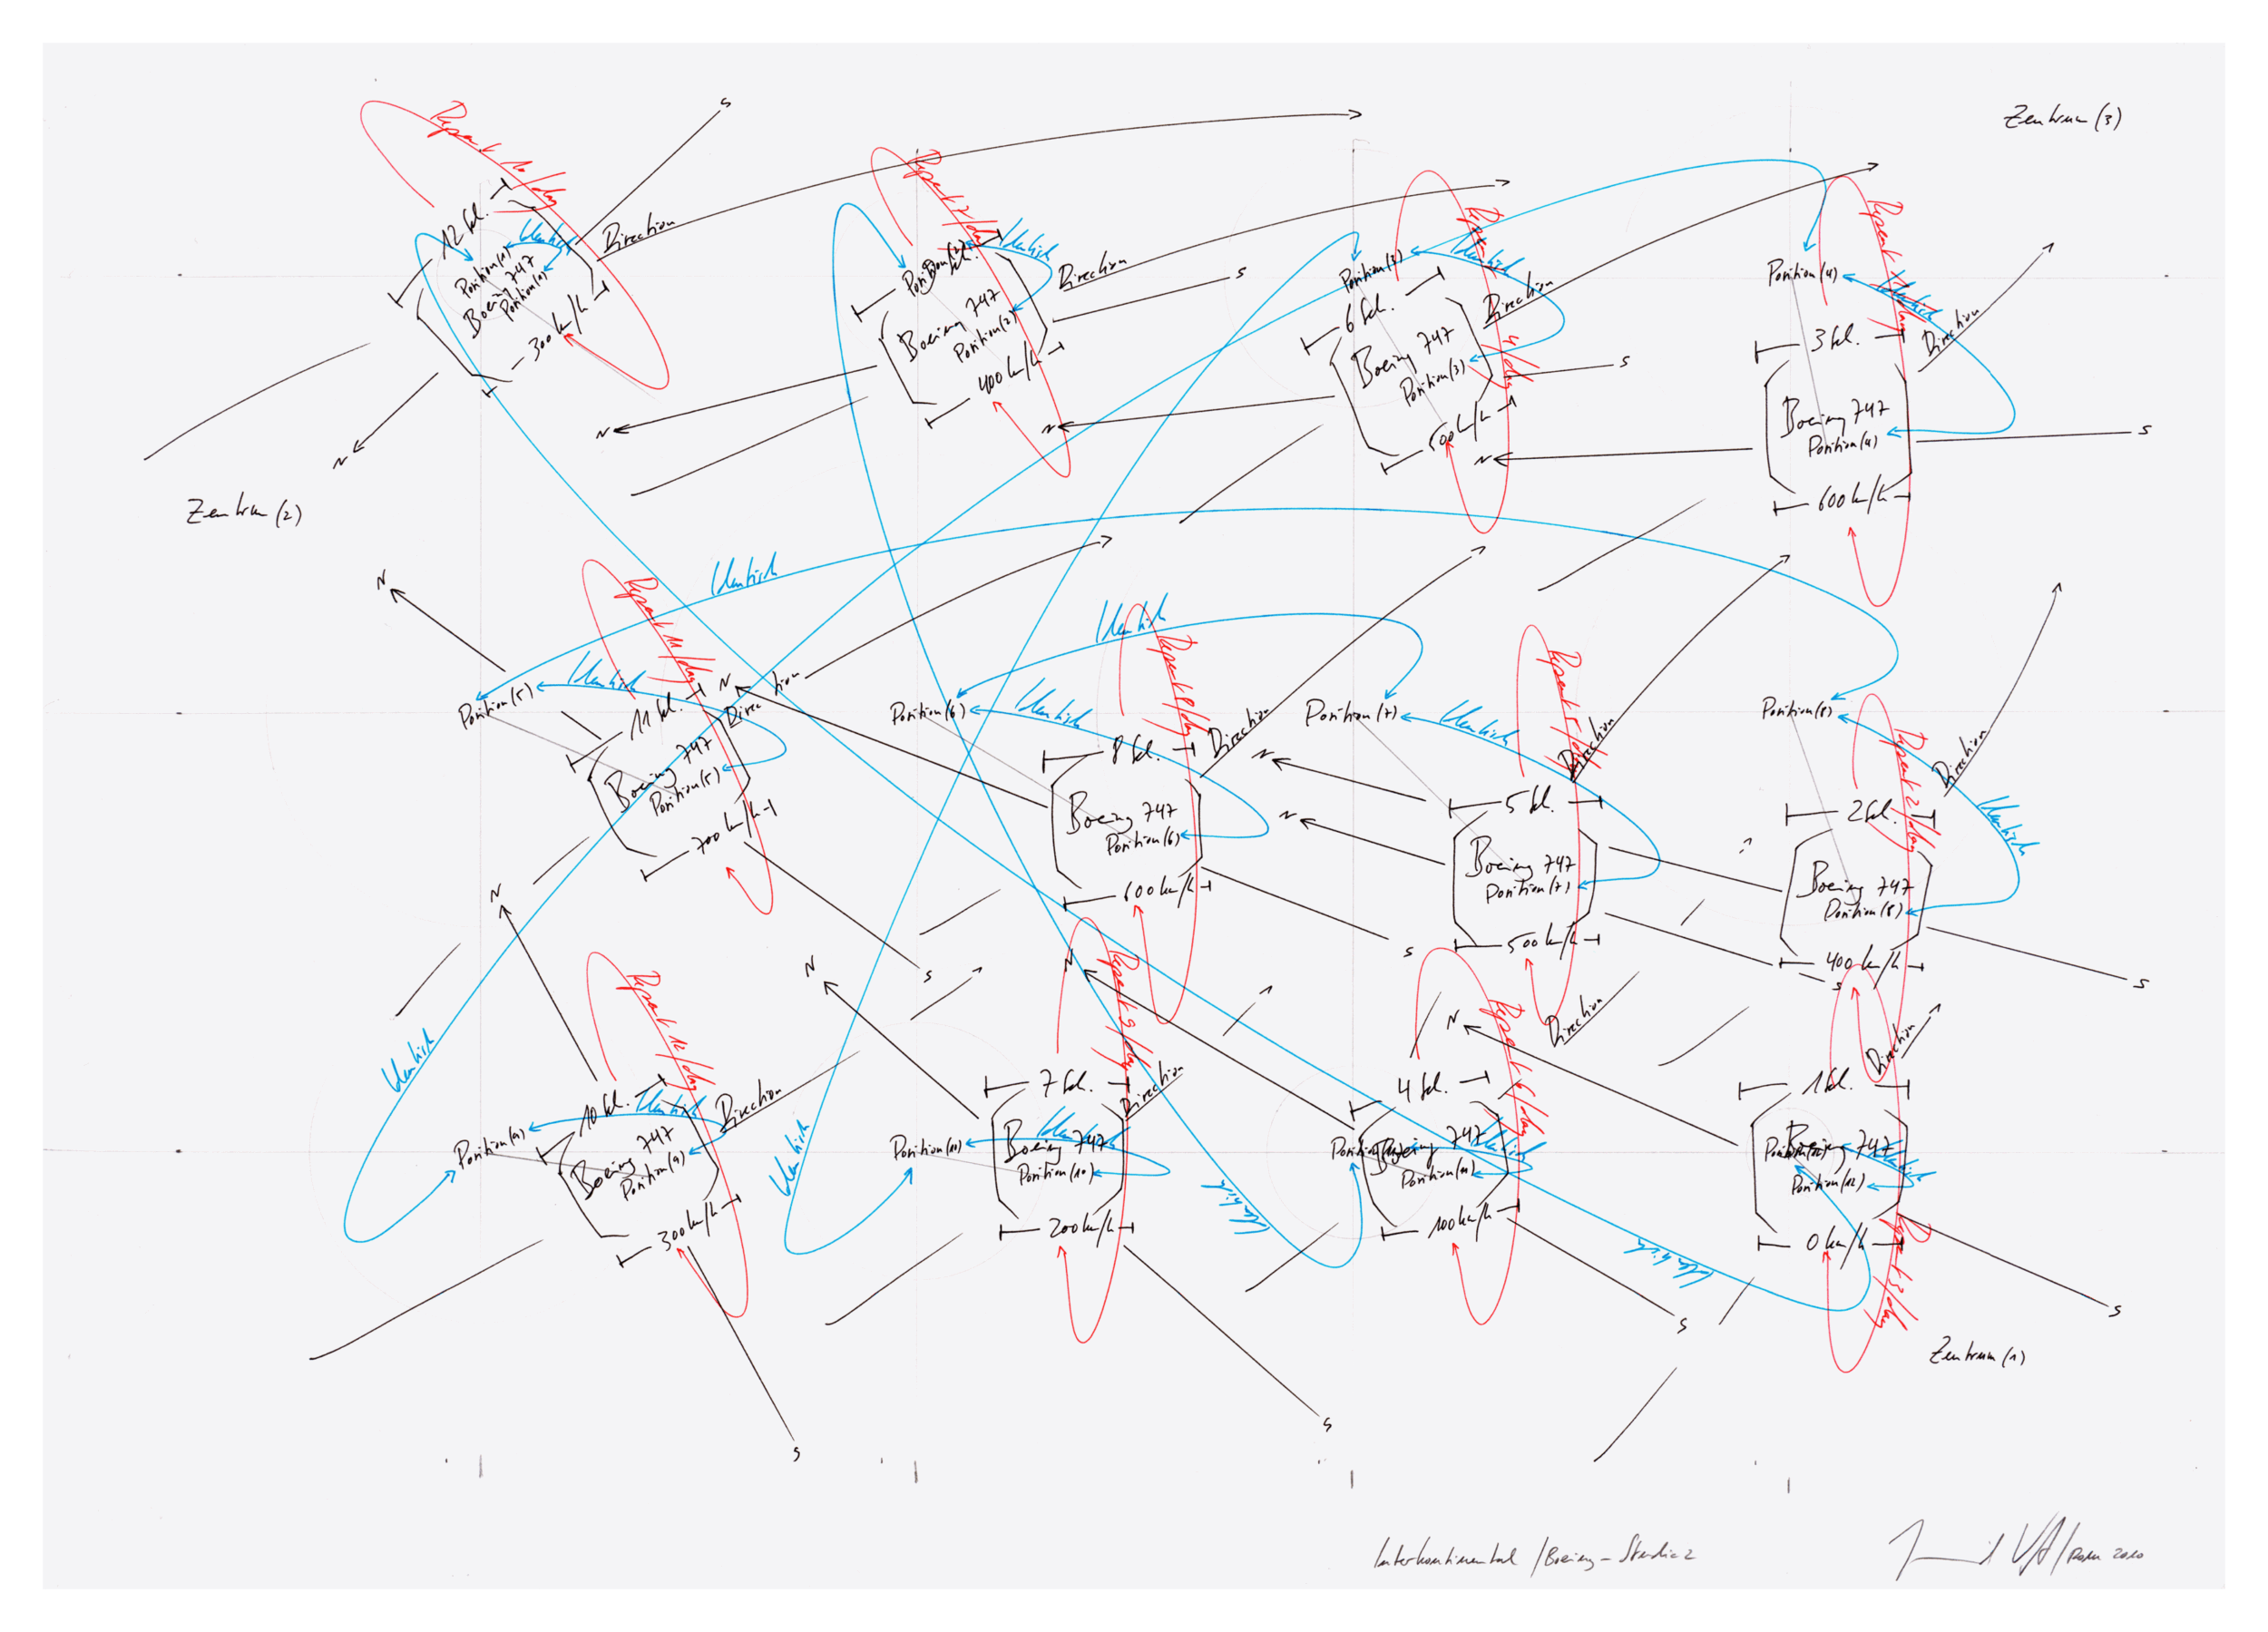 Zentrum (3)
Repeat 10/day
12 Sek.
Identisch
Position(1)
Boeing 747
Position(1)
300 km/h
Direction
N
S
Repeat 7/day
Identisch
Position(2)
Sek.
Boeing 747
Position(2)
400 km/h
Direction
N
S
Repeat 4/day
Identisch
Position(3)
6 Sek.
Boeing 747
Position(3)
500 km/h
Direction
N
S
Repeat 1/day
Identisch
Position(4)
3 Sek.
Boeing 747
Position(4)
600 km/h
Direction
N
S
Zentrum (2)
Identisch
Repeat 11/day
Identisch
Position(5)
11 Sek.
Boeing 747
Position(5)
700 km/h
Direction
N
S
Identisch
Repeat 8/day
Identisch
Position(6)
8 Sek.
Boeing 747
Position(6)
600 km/h
Direction
N
S
Repeat 5/day
Identisch
Position(7)
5 Sek.
Boeing 747
Position(7)
500 km/h
Direction
N
S
Repeat 2/day
Identisch
Position(8)
2 Sek.
Boeing 747
Position(8)
400 km/h
Direction
N
S
Identisch
Repeat 12/day
Identisch
Position(9)
10 Sek.
Boeing 747
Position(9)
300 km/h
Direction
N
S
Identisch
Repeat 9/day
Identisch
Position(10)
7 Sek.
Boeing 747
Position(10)
200 km/h
Direction
N
S
Identisch
Repeat 6/day
Identisch
Position(11)
4 Sek.
Boeing 747
Position(11)
100 km/h
Direction
N
S
Identisch
Repeat 3/day
Identisch
Position(12)
1 Sek.
Boeing 747
Position(12)
0 km/h
Direction
N
S
Zentrum (1)
Interkontinental / Boeing - Studie 2
2010